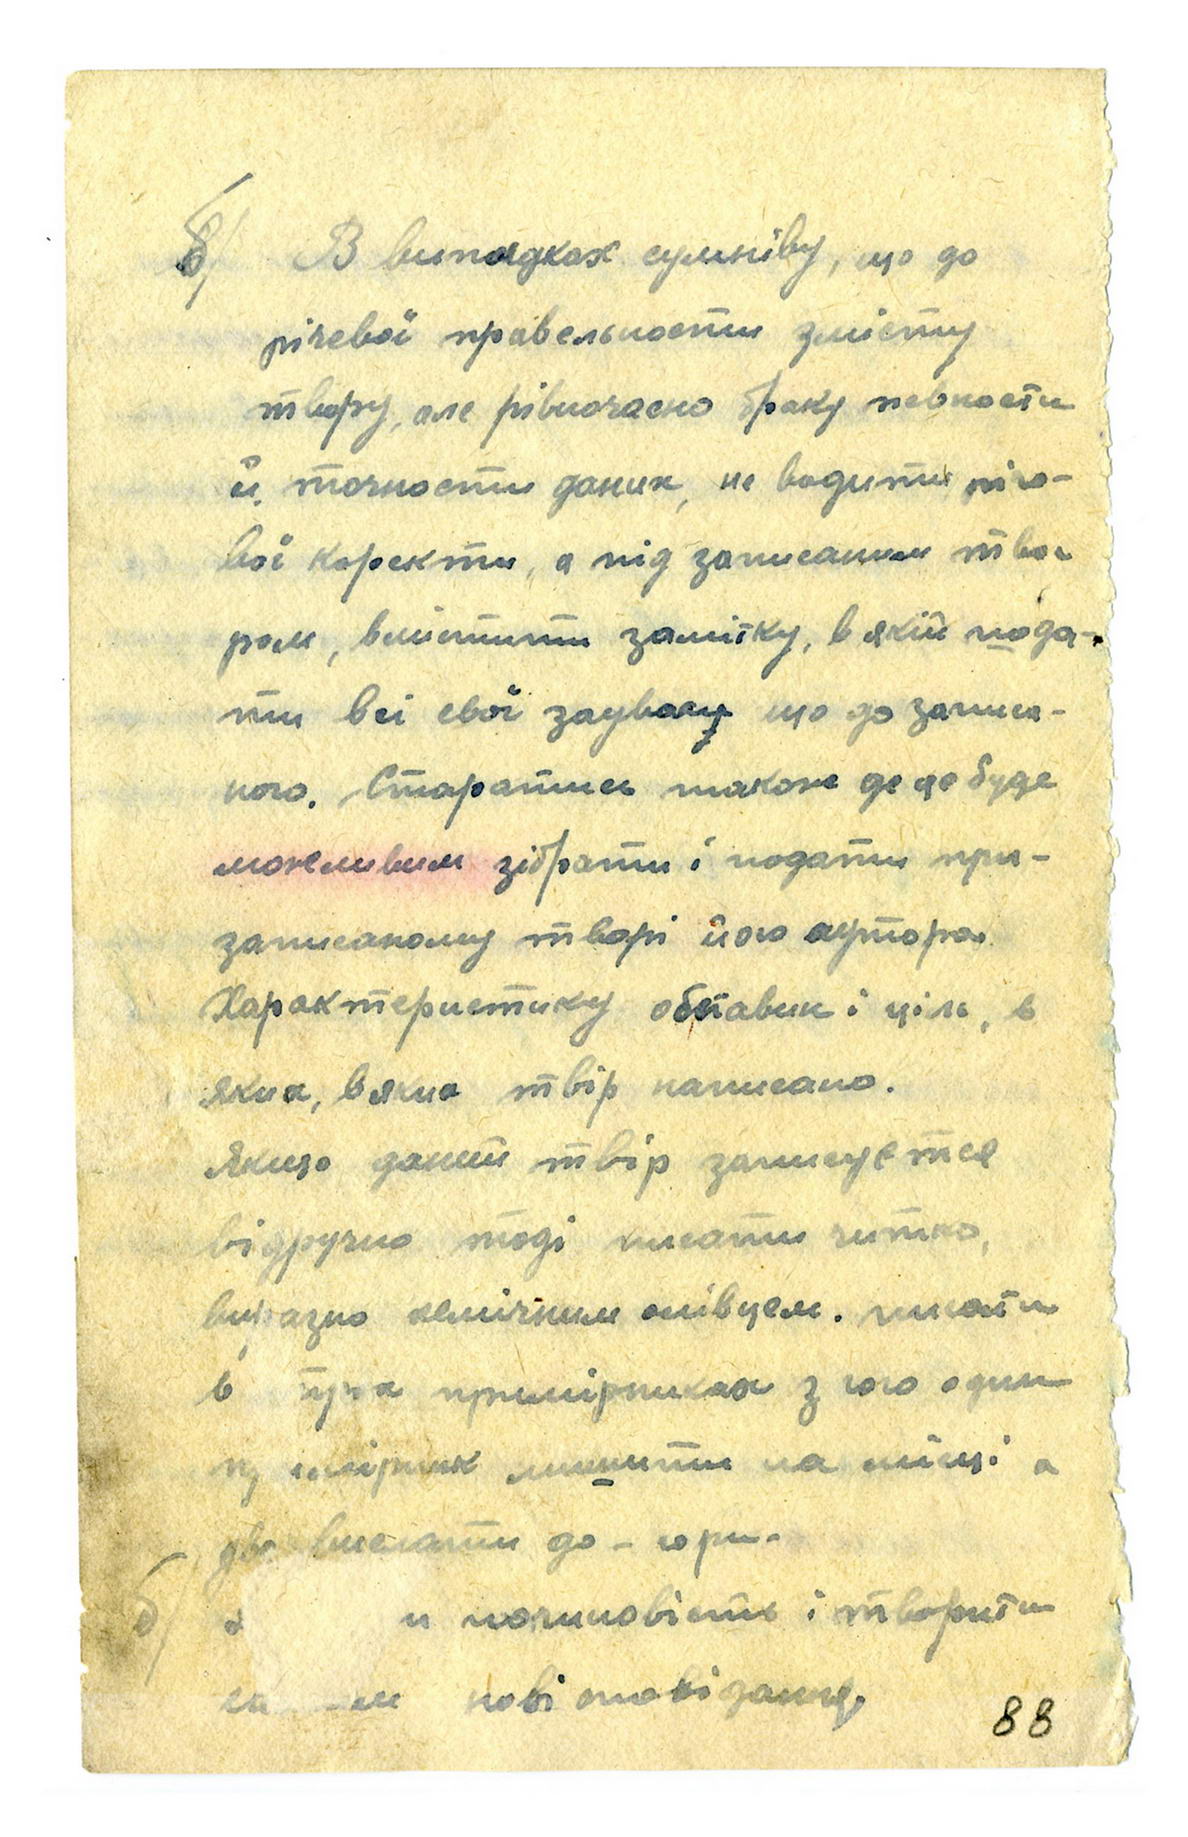 б/ В випадках сумніву, що до
річевої правельности змісту
твору, але рівночасно браку певности
й точности даних, не водити річе-
вої коректи, а під записаним тво-
ром, вмістити замітку, в якій пода-
ти всі свої зауваги що до записа-
ного. Старатись також де це буде
можеливим зібрати і подати при-
записаному творі його аутора.
Характеристику обставин і ціль, в
яких, в яких твір написано.
Якщо даний твір записуєтся
відручно тоді писати читко,
виразно хемічним олівцем. писати
в трох примірниках з чого один
примірник лишити на місці а
два висилати до-гори.
б/ и починовість і творити
нові оповідання.
88